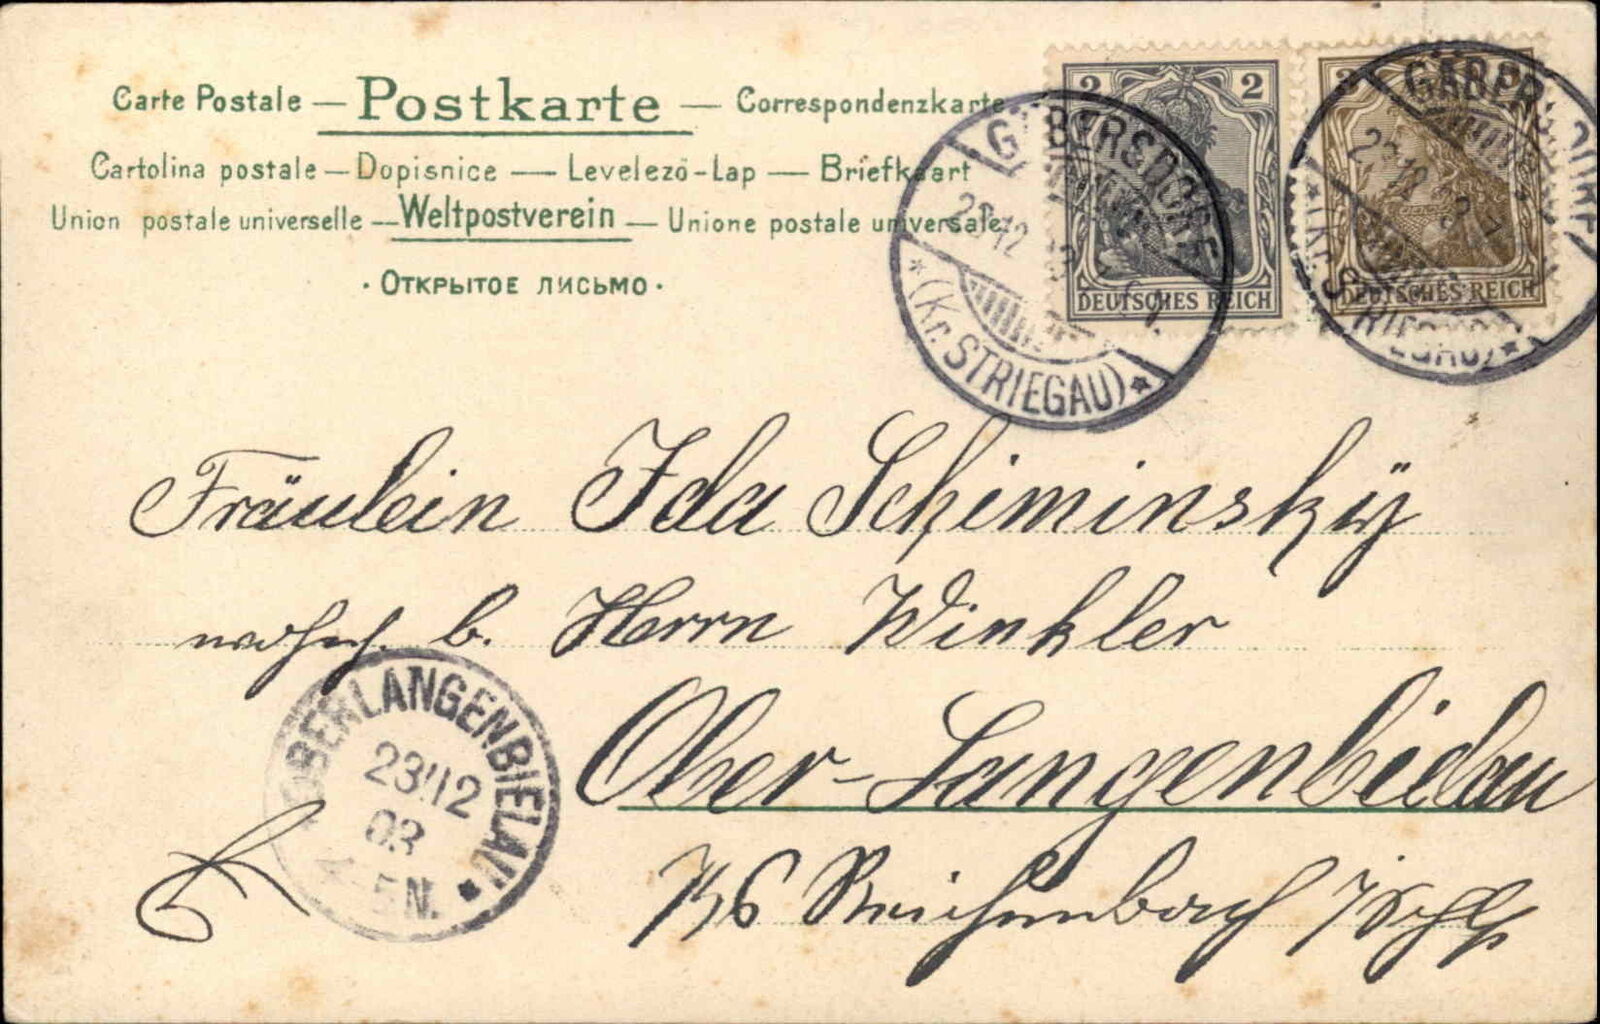 Carte Postale — Postkarte — Correspondenzkarte
Cartolina postale — Dopisnice — Levelező-Lap — Briefkaart
Union postale universelle — Weltpostverein — Unione postale universale
· Открытое письмо ·
2 2
DEUTSCHES REICH
3
DEUTSCHES REICH
GÄBERSDORF
12
* (Kr. STRIEGAU) *
GÄBERSDORF
* (Kr. STRIEGAU) *
Fräulein Ida Schiminský
wohnh. b. Herrn Winkler
Ober-Langenbielau
Reichenbach i/Schl
OBERLANGENBIELAU *
23/12
03
N.